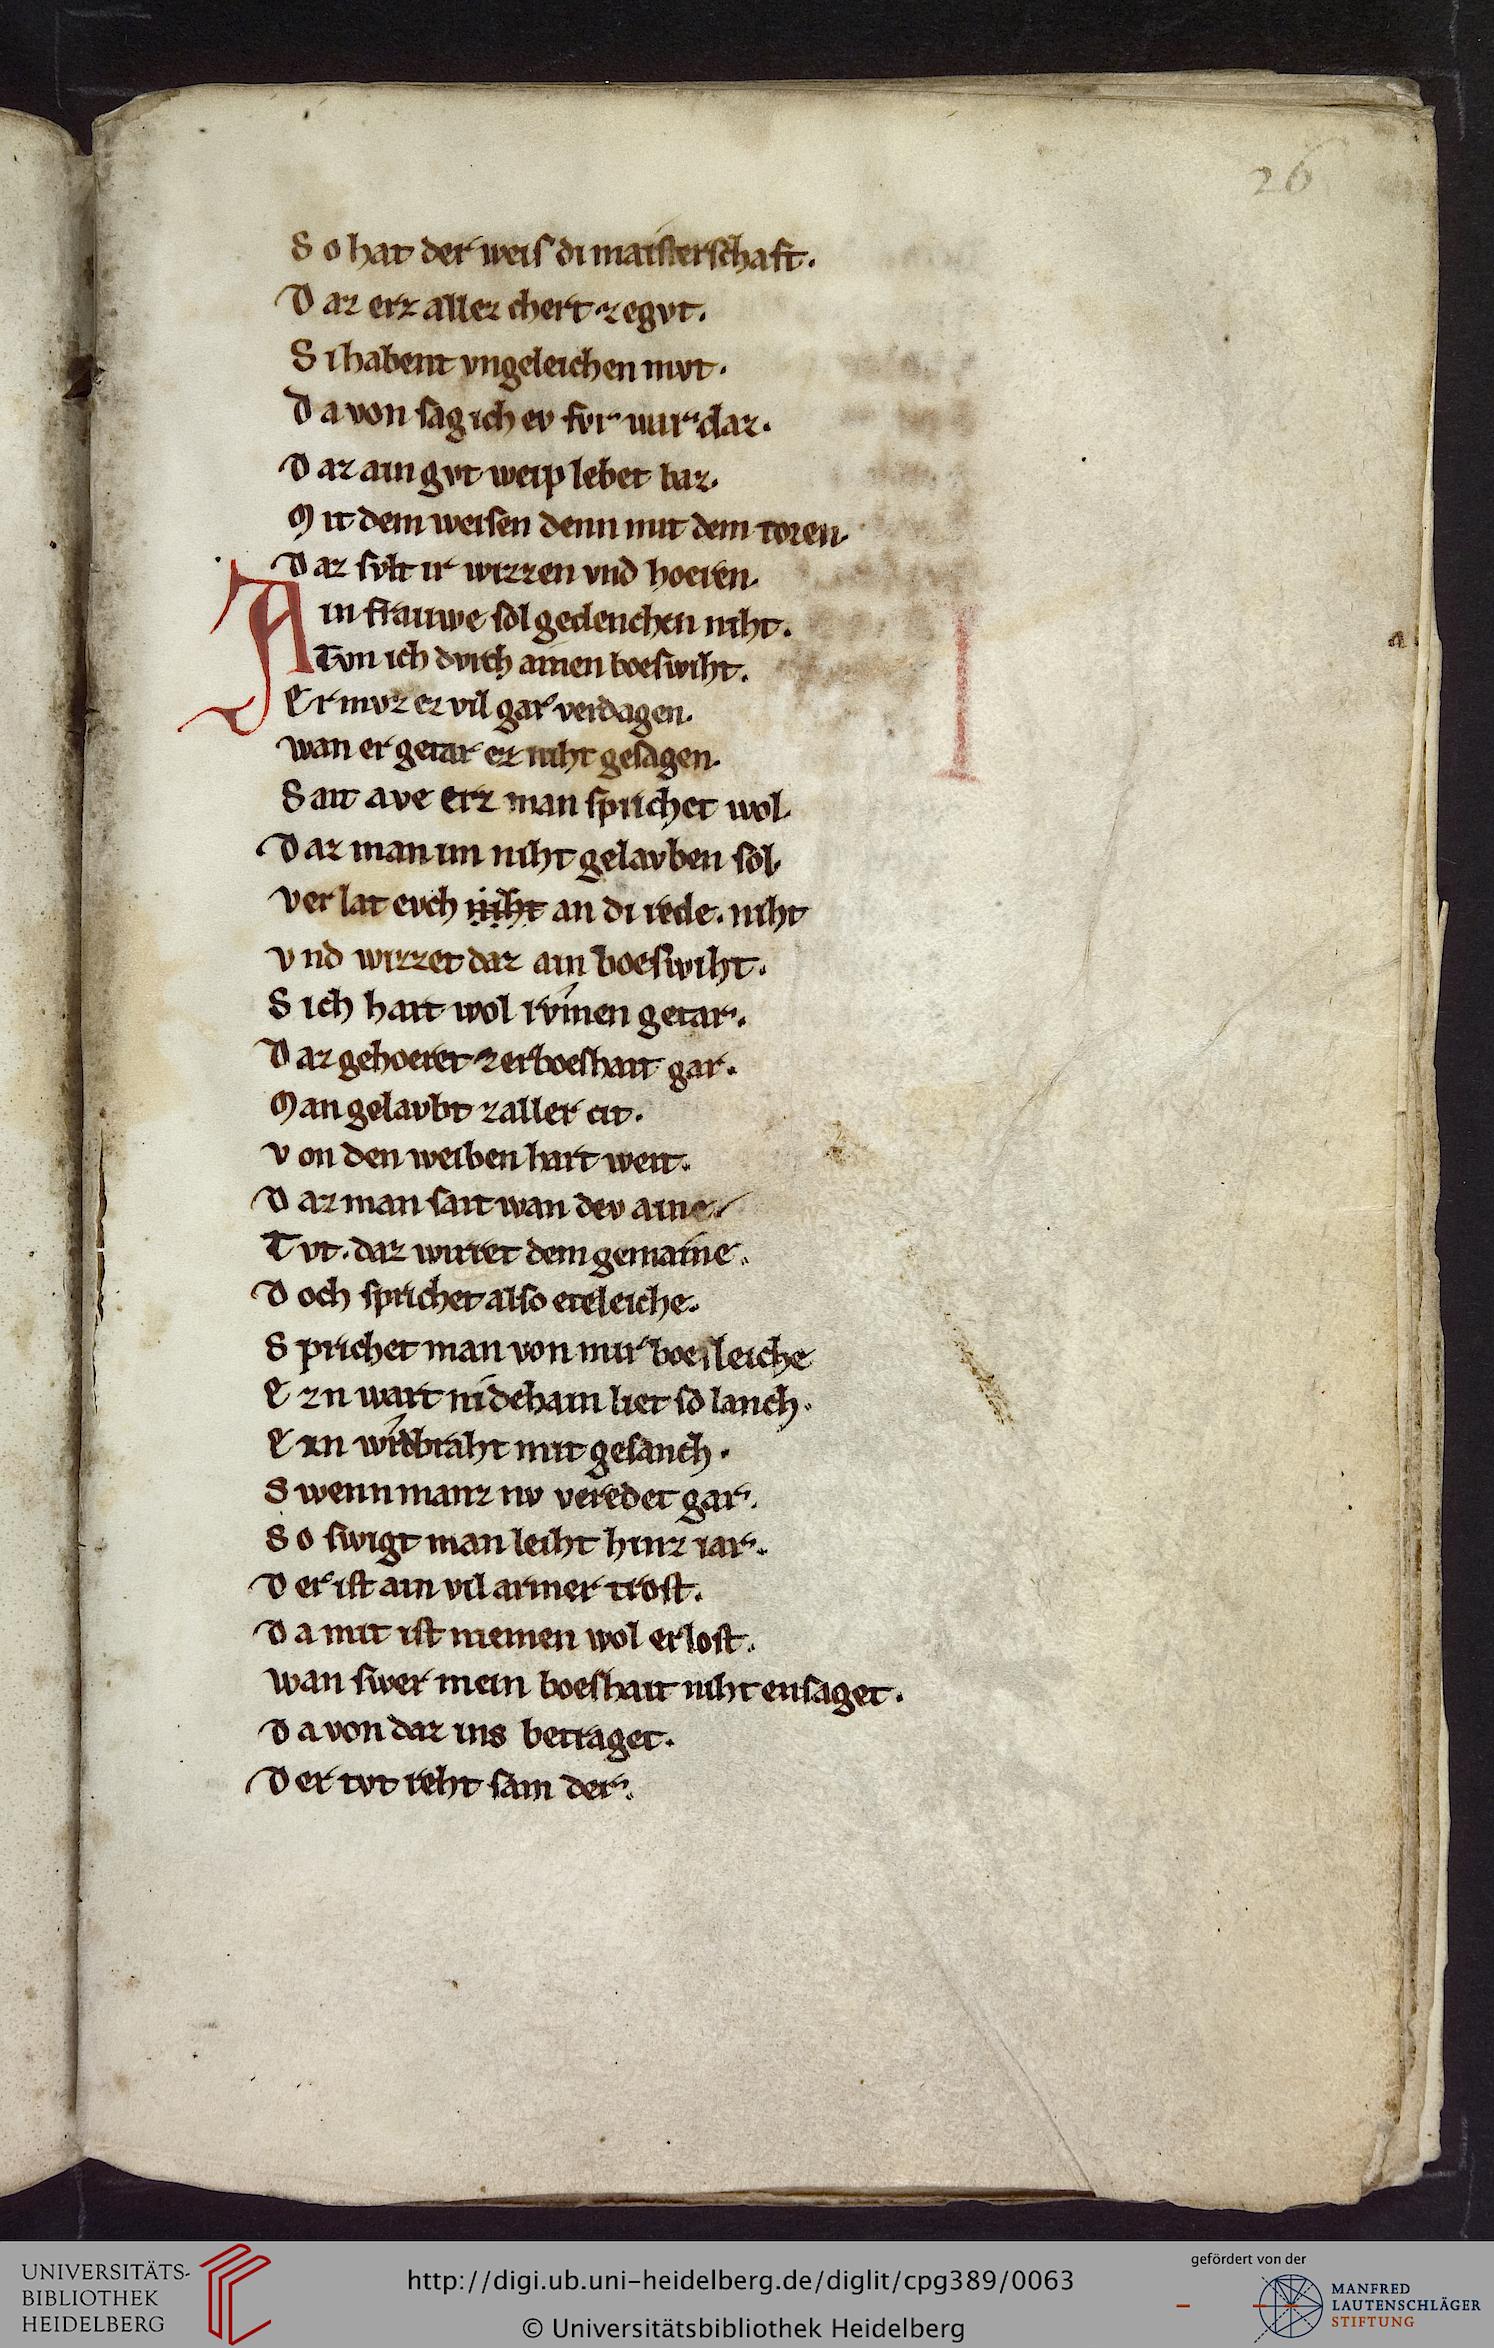 26
S o hat der weis di maisterschaft.
D az erz allez chert zegvt.
S i habent vngeleichen mvt.
D a von sag ich ev fvr wur daz.
D az ain gvt weip lebet baz.
M it dem weisen denn mit dem toren.
D az svlt ir wizzen vnd hoeren.
A in frauwe sol gedenchen niht.
Tvn ich dvrch ainen boeswiht.
E r mvz ez vil gar verdagen.
wan er getar ez niht gesagen.
S ait ave erz man sprichet wol.
D az man im niht gelavben sol.
V er lat evch niht an di rede. niht
V nd wizzet daz ain boeswiht.
S ich hart wol rvmen getar.
D az gehoeret zer boeshait gar.
M an gelavbt zaller cit.
V on den weiben hart weit.
D az man sait wan dev aine.
T vt. daz wirret dem gemaine.
D och sprichet also eteleiche.
S prichet man von mir boesleiche
E zn wart nideham liet so lanch.
E zn wrdbraht mit gesanch.
S wenn manz nv veredet gar.
S o swigt man leiht hinz iar.
D er ist ain vil armer trost.
D a mit ist niemen wol erlost.
wan swer mein boeshait niht ensaget.
D a von daz ins betraget.
D er tvt reht sam der.
a
UNIVERSITÄTS-
BIBLIOTHEK
HEIDELBERG
http://digi.ub.uni-heidelberg.de/diglit/cpg389/0063
© Universitätsbibliothek Heidelberg
gefördert von der
MANFRED
LAUTENSCHLÄGER
STIFTUNG